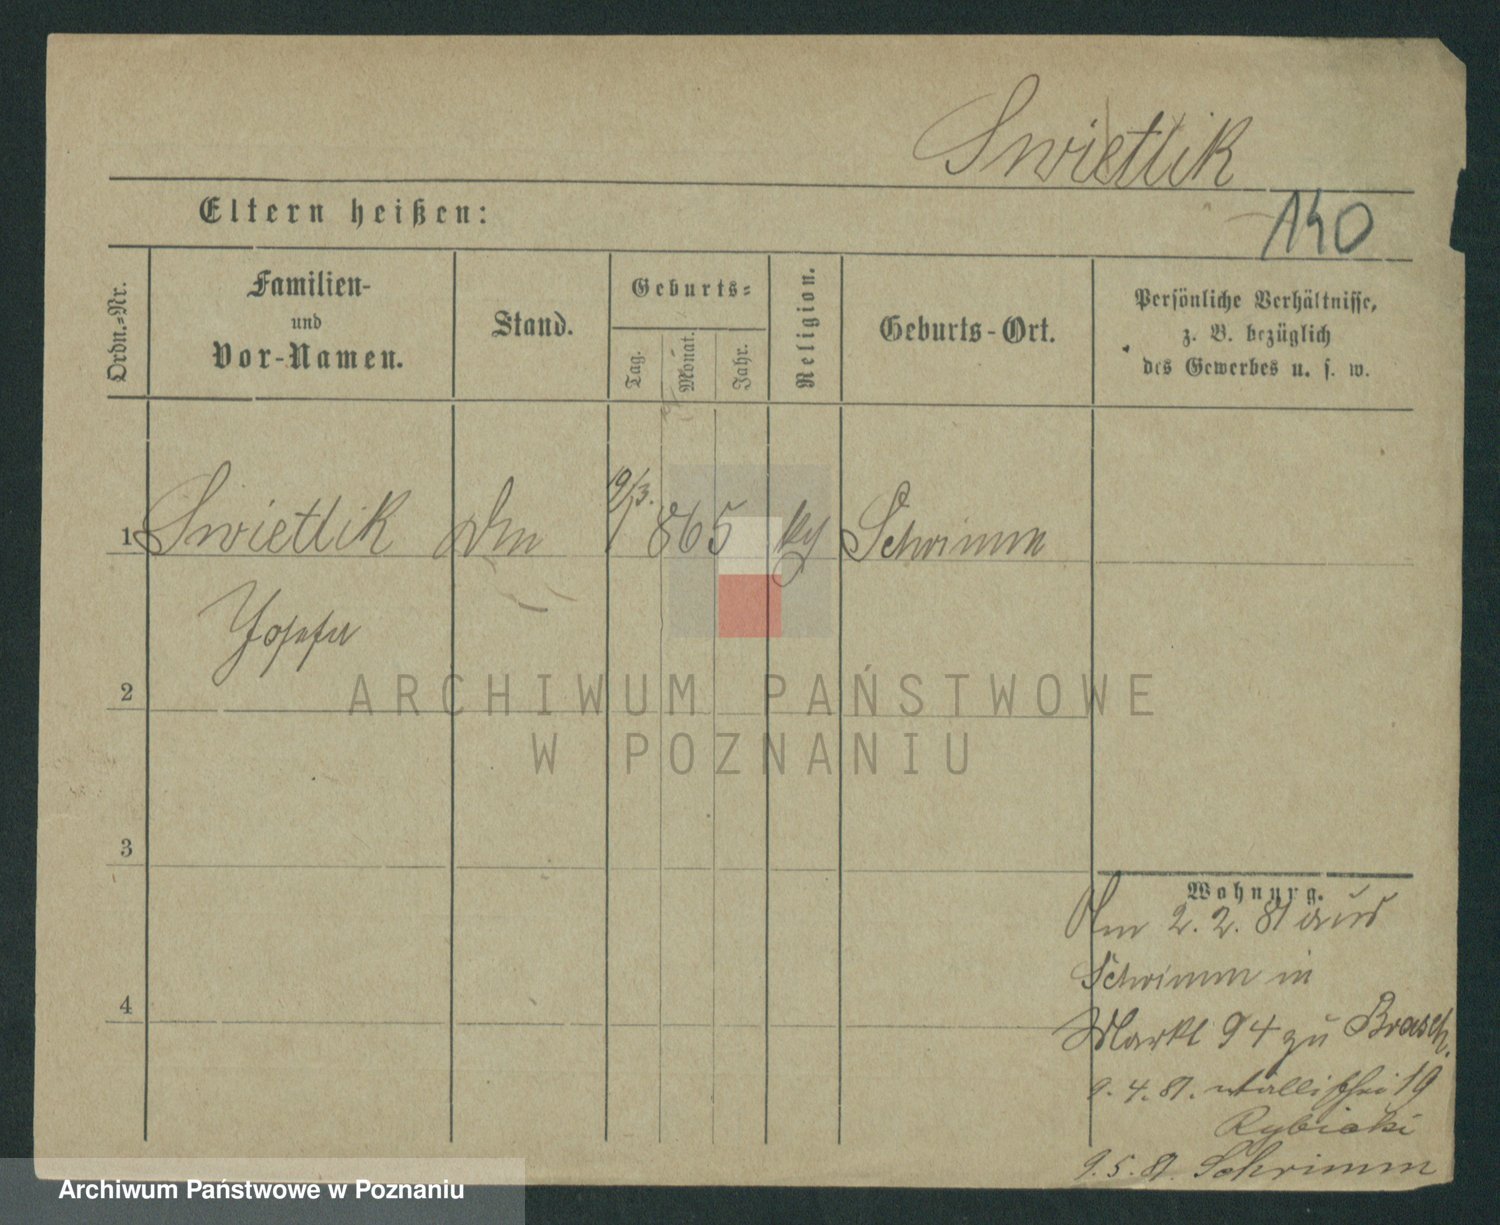 Swietlik
140
Eltern heißen:
Ordn.-Nr.
Familien-
und
Vor-Namen.
Stand.
Geburts-
Tag.
Monat.
Jahr.
Religion.
Geburts-Ort.
Persönliche Verhältnisse,
z. B. bezüglich
des Gewerbes u. s. w.
1 Swietlik 9/3. 865 Schrimm
Josefa
2
3
4
Wohnung.
Am 2. 2. 81 aus
Schrimm in
Markt 94 zu Brasch.
9. 4. 81. Wallischei 19
Rybicki
9. 5. 81. Schrimm
ARCHIWUM PAŃSTWOWE
W POZNANIU
Archiwum Państwowe w Poznaniu